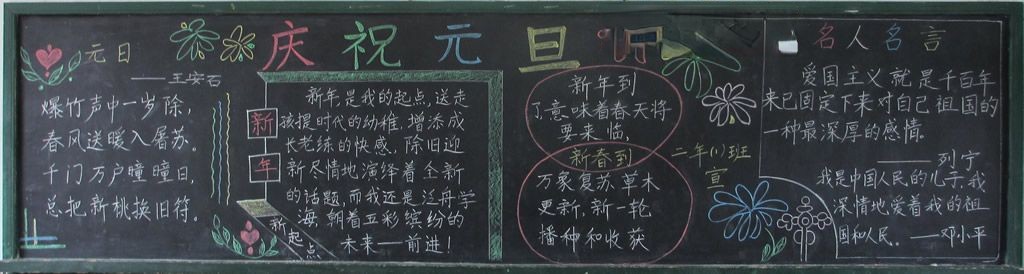 庆祝元旦
元日
——王安石
爆竹声中一岁除,
春风送暖入屠苏。
千门万户曈曈日,
总把新桃换旧符。
新年
新年是我的起点,送走
孩提时代的幼稚,增添成
长老练的快感,除旧迎
新尽情地演绎着全新
的话题,而我还是泛舟学
海,朝着五彩缤纷的
未来——前进!
新起点
新年到
了,意味着春天将
要来临,
新春到
万象复苏,草木
更新,新一轮
播种和收获
二年(1)班
宣
名人名言
爱国主义就是千百年
来已固定下来对自己祖国的
一种最深厚的感情。
——列宁
我是中国人民的儿子,我
深情地爱着我的祖
国和人民。——邓小平